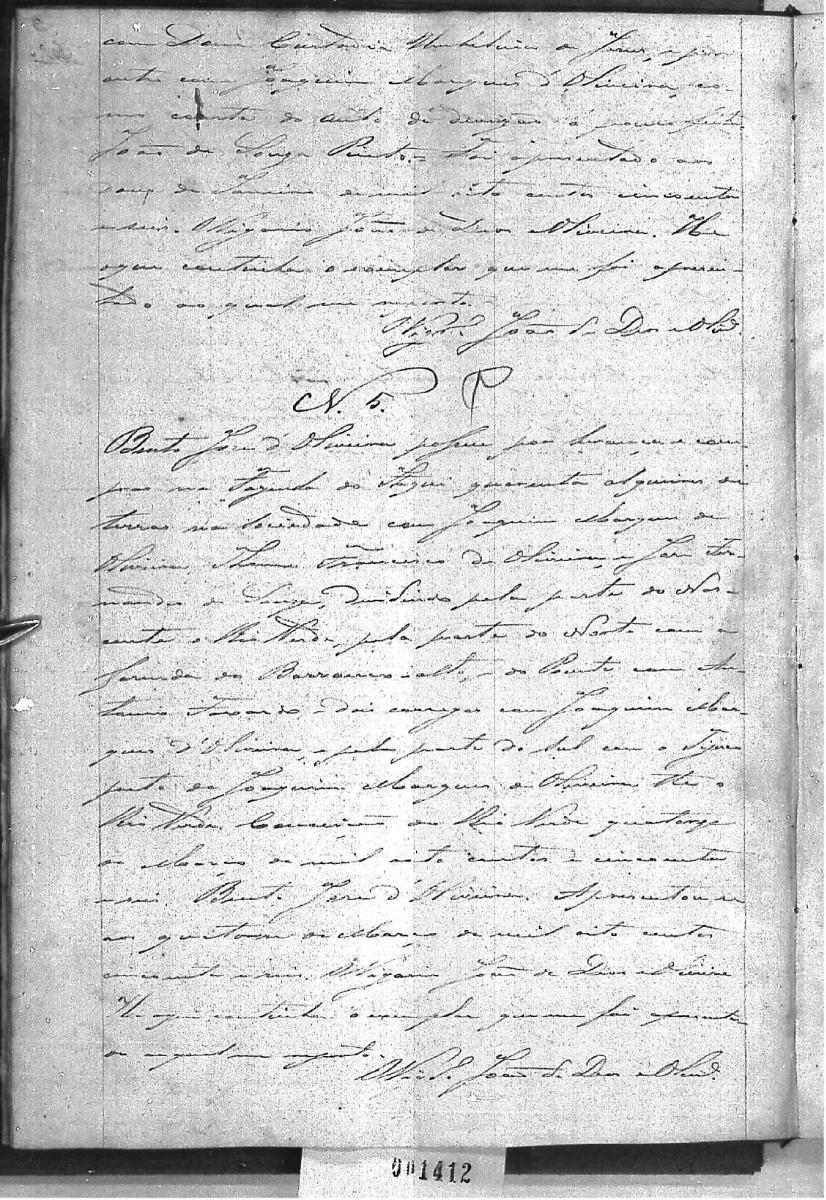 com Dona Custodia de Jesus, e por
outro com Joaquim Marques d'Oliveira, co-
mo consta do auto de
João de Souza Pinto. Foi apresentado aos
de Janeiro de mil oito centos cincoenta
e seis. O Vigario João de Deos e Oliveira. He
o que continha o exemplar que me foi apresen-
tado ao qual me reporto.
O Vigr.º João de Deos e Oliv.ª
N. 5.
Bento José d'Oliveira possue por herança e com-
pras na Fazenda do quarenta alqueires de
terras na Sociedade com Joaquim Marques de
Oliveira, Francisco de Oliveira, e José Fer-
nandes de dividindo pela parte do Nas-
cente o Rio Verde, pela parte do Norte com a
fazenda do Barranco-alto, e do Poente com An-
tonio e dois corregos com Joaquim Mar-
ques d'Oliveira, e pela parte do Sul com o
perto do Joaquim Marques de Oliveira the o
Rio Verde. Conceição do Rio Verde quatorze
de Março de mil oito centos e cincoenta
e seis. Bento José d'Oliveira. Apresentou-se
aos quatorze de Março de mil oito centos
cincoenta e seis. O Vigario João de Deos e Oliveira
He o que continha o exemplar que me foi apresenta-
do ao qual me reporto.
O Vigr.º João de Deos e Oliv.ª
001412